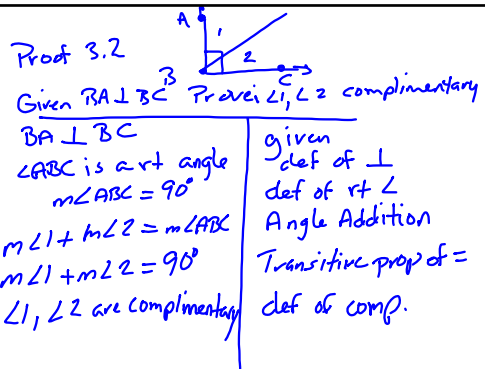 A
1
Proof 3.2
2
B
C
Given BA ⊥ BC Prove: ∠1, ∠2 complimentary
BA ⊥ BC given
∠ABC is a rt angle def of ⊥
m∠ABC = 90° def of rt ∠
m∠1 + m∠2 = m∠ABC Angle Addition
m∠1 + m∠2 = 90° Transitive prop of =
∠1, ∠2 are complimentary def of comp.